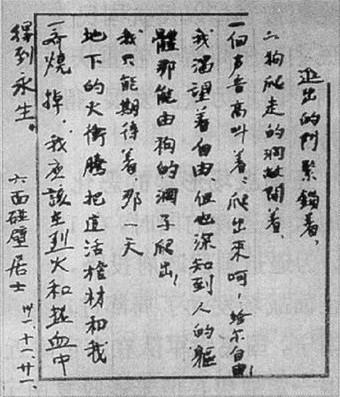 進出的門緊鎖着，
为狗爬走的洞敞開着，
一個声音高叫着：爬出來呵！給尔自由！
我渴望着自由，但也深知到人的軀
體那能由狗的洞子爬出！
我只能期待着，那一天
地下的火衝騰，把這活棺材和我
一齊燒掉，我應該在烈火和熱血中
得到永生。
六面碰壁居士 卅一、十一、廿一、